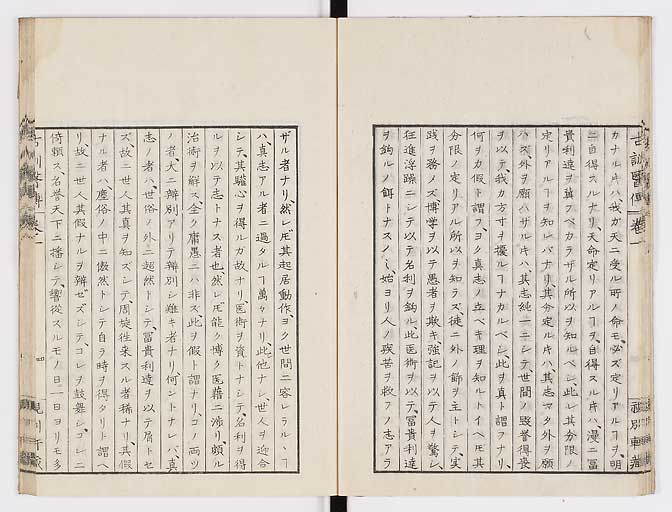 カナルトキハ我ガ天ニ受ル所ノ命モ必ズ定リアルヿヲ明
ニ自得スルナリ、天命定リアルヿヲ自得スルトキハ漫ニ冨
貴利達ヲ冀フベカラザル所以ヲ知ルベシ、此レ其分限ノ
定リアルヿヲ知レバナリ、其分定ルトキハ其志マタ外ヲ願
ハズ外ヲ願ハザルトキハ其志純一ニシテ世間ノ毀誉得喪
ヲ以テ、我ガ方寸ヲ擾ルヿナカルベシ、此ヲ真ト謂フナリ、
何ヲカ假ト謂フヨク真志ノ立ベキ理ヲ知ルトイヘ𪜈其
分限ノ定リアル所以ヲ知ラズ徒ニ外ノ飾ヲ主トシテ実
践ヲ務メズ博学ヲ以テ愚者ヲ欺キ強記ヲ以テ人ヲ驚シ、
狂進浮躁ニシテ以テ名利ヲ鈎ル、此医術ヲ以テ、冨貴利達
ヲ鈎ルノ餌トナスノミ、始ヨリ人ノ疾苦ヲ救フノ志アラ
ザル者ナリ、然レ𪜈其起居動作ヨク世間ニ容レラルヽヿ
ハ、真志アル者ニ過タルヿ萬々ナリ、此他ナシ、世人ヲ迎合
シテ、其驩心ヲ得ルガ故ナリ医術ヲ資トナシテ、名利ヲ得
ルヲ以テ志トナス者也然レ𪜈能ク博ク医藉ニ渉リ、頗ル
治術ヲ解ス、全ク庸愚ニハ非ズ、此ヲ假ト謂ナリ、コノ両ツ
ノ者、大ニ辨別アリテ辨別シ難キ者ナリ、何ントナレバ、真
志ノ者ハ世俗ノ外ニ超然トシテ、冨貴利達ヲ以テ屑トセ
ズ故ニ世人其真ヲ知ズシテ、周旋徃来スル者稀ナリ、其假
ナル者ハ塵俗ノ中ニ傲然トシテ自ラ時ヲ得タリト謂ヘ
リ、故ニ世人其假ナルヲ辨ゼズシテ、コレヲ鼓舞シ、コレニ
倚頼ス、名誉天下ニ播シテ、響從スルモノ日一日ヨリモ多